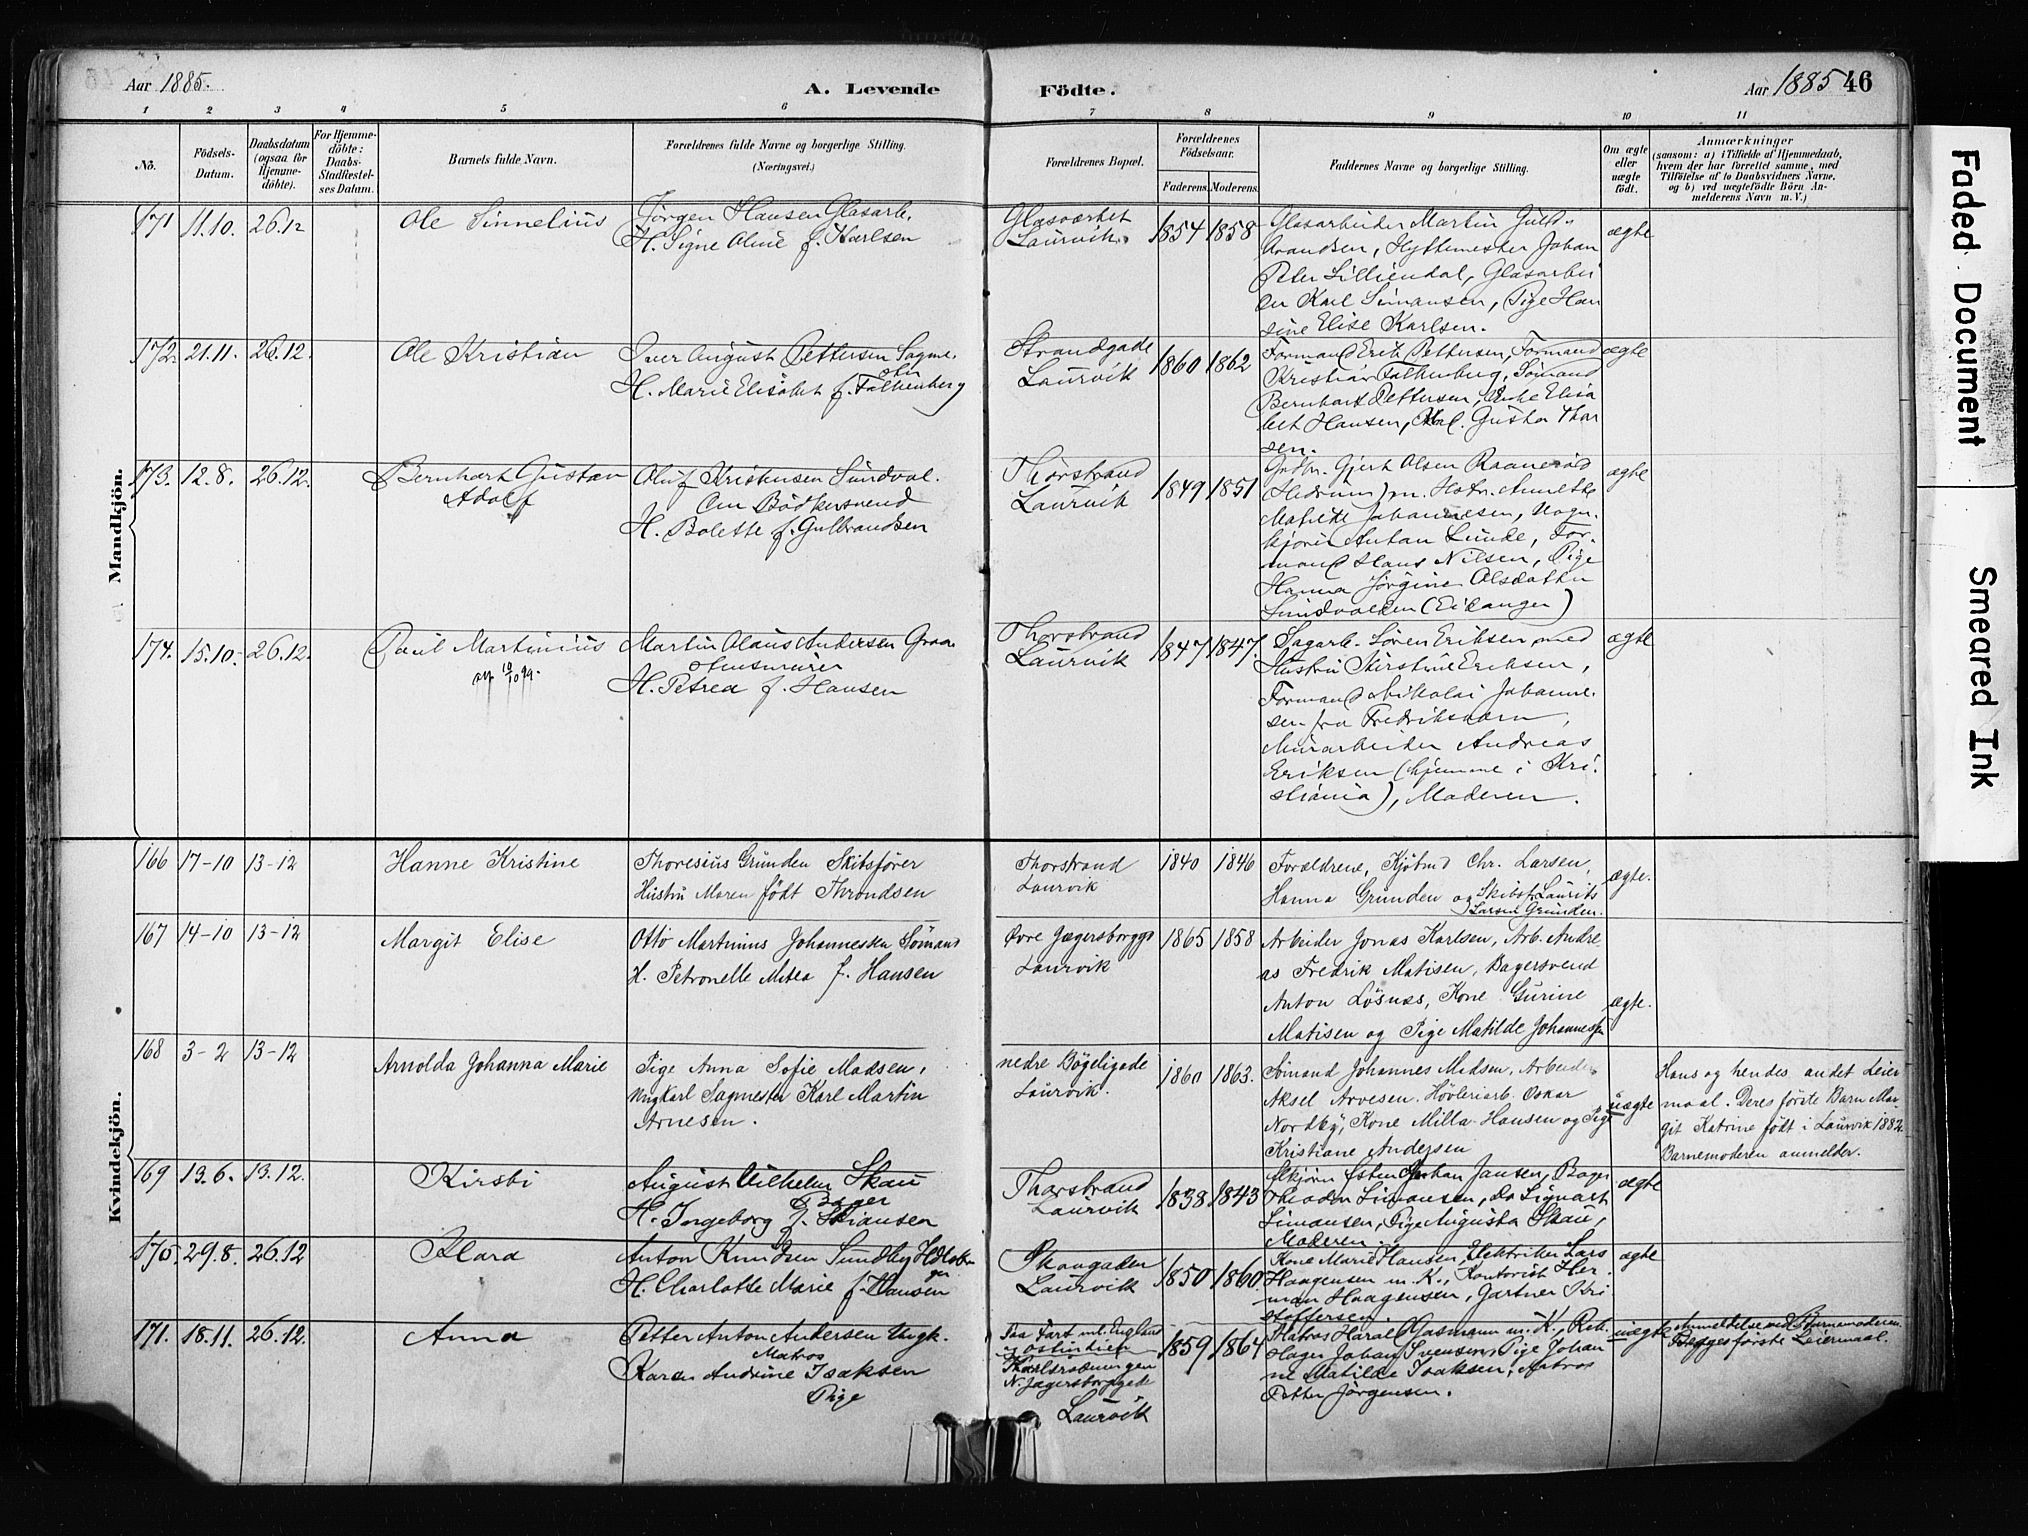 Aar 1885.
A. Levende
Födte.
Aar 1885 46
1 2 3 4 5 6 7 8 9 10 11
Nô.
Födsels-
Datum.
Daabsdatum
(ogsaa for
Hjemme-
döbte).
For Hjemme-
döbte:
Daabs-
Stadfæstel-
ses Datum.
Barnets fulde Navn.
Forældrenes fulde Navne og borgerlige Stilling.
(Næringsvei.)
Forældrenes Bopæl.
Forældrenes
Födselsaar.
Faderens. Moderens.
Faddernes Navne og borgerlige Stilling.
Om ægte
eller
uægte
födt.
Anmærkninger
(saasom: a) i Tilfælde af Hjemmedaab,
hvem der har forrettet samme, med
Tilföielse af to Daabsvidners Navne,
og b) ved uægtefödte Börn An-
melderens Navn m. V.)
Mandkjön.
171 11.10. 26.12 Ole Sinnelius
Jörgen Hansen Glasarb.
H. Signe Oline f. Karlsen
Glasværket
Laurvik.
1854 1858
Glasarbeider Martin Gulb-
randsen, Hyttemester Johan
Peter Lilliendal, Glasarbei
der Karl Simonsen, Pige Han
sine Elise Karlsen.
ægte
172. 21.11. 26.12. Ole Kristian
Iver August Pettersen Sagme-
ster
H. Marie Elisabet f. Falkenberg
Strandgade
Laurvik
1860 1862
Formand Erik Pettersen, Formand
Kristian Falkenberg, Sömand
Bernhart Pettersen, Enke Elisa
bet Hansen, Gusta Thor
sen.
ægte
173. 12.8. 26.12. Bernhart Gustav
Adolf
Oluf Kristensen Sundval.
Bödkersvend
H. Bolette f. Gulbrandsen
Thorstrand
Laurvik
1849 1851
Grdbr. Gjert Olsen
Hedrum) m. Hstr. Anette
Matilde Johannesen, Vogn-
kjörer Anton Lunde, For-
mand Hans Nilsen, Pige
Hanna Jörgine Olsdatter
Sundvolden (Eidanger)
ægte
174. 15.10. 26.12. Paul Martinius
Martin Olaus Andersen Graa-
stensmurer
H. Petrea f. Hansen
Thorstrand
Laurvik
1847 1847.
Sagarb. Sören Eriksen med
Hustru Kirstine Eriksen,
Formand Nikolai Johanne-
sen fra Fredriksværn,
Murarbeider Andreas
Eriksen (hjemme i Kri-
stiania), Moderen.
ægte
Kvindekjön.
166 17-10 13-12 Hanne Kristine
Thoresius Grunden Skibsfører
Hustru Maren født Throndsen
Thorstrand
Laurvik
1840 1846
Forældrene, Kjøbmd Chr. Larsen,
Hanna Grunden og Skibsf. Laurits
Larsen Grunden.
ægte.
167 14-10 13-12 Margit Elise
Otto Martinius Johannessen Sømand
H. Petronelle Mitea f. Hansen
Øvre Jægersborggd
Laurvik
1865 1858
Arbeider Jonas Karlsen, Arb. Andre
as Fredrik Matisen, Bagersvend
Anton Løsnæs, Kone Gurine
Matisen og Pige Matilde Johannessen
ægte.
168 3-2 13-12 Arnolda Johanna Marie
Pige Anna Sofie Madsen,
Ungkarl Sagmester Karl Martin
Arnesen.
nedre Bøgeligade
Laurvik.
1860 1863.
Sømand Johannes Madsen, Arbeider
Aksel Arvesen. Høvleriarb. Oskar
Nordby, Kone Milla Hansen og Pige
Kristiane Andersen
uægte
Hans og hendes andet Leier
maal. Deres første Barn Mar-
git Katrine født i Laurvik 1882.
Barnemoderen anmelder.
169 13.6. 13.12. Kirsti
August Vilhelm Skau
Bager
H. Ingeborg f.
Thorstrand
Laurvik
1838 1843
Johan Jansen, Bager
Simonsen, Do Signart
Simonsen, Pige Augusta Skau,
Moderen.
ægte
170. 29.8. 26.12 Klara
Anton Knudsen Sundby
H. Charlotte Marie f. Hansen
Skovgaden
Laurvik
1850 1860.
Kone Marie Hansen, Elektriker Lars
Haagensen m. K., Kontorist Her
man Haagensen, Gartner Kri
stoffersen.
ægte
171. 18.11. 26.12. Anna
Petter Anton Andersen Ungk.
Matros
Karen Andrine Isaksen
Pige
Paa Fart ml. England
og Ostindien
N. Jægersborggade
Laurvik
1859 1864
Matros Harald Gasmann m. K., Reb.
Hager Johan Svensen, Pige Johan
ne Matilde Isaksen, Matros
Petter Jörgensen.
uægte
Anmeldelse ved Barnemoderen.
Begges förste Leiermaal.
Faded Document
Smeared Ink